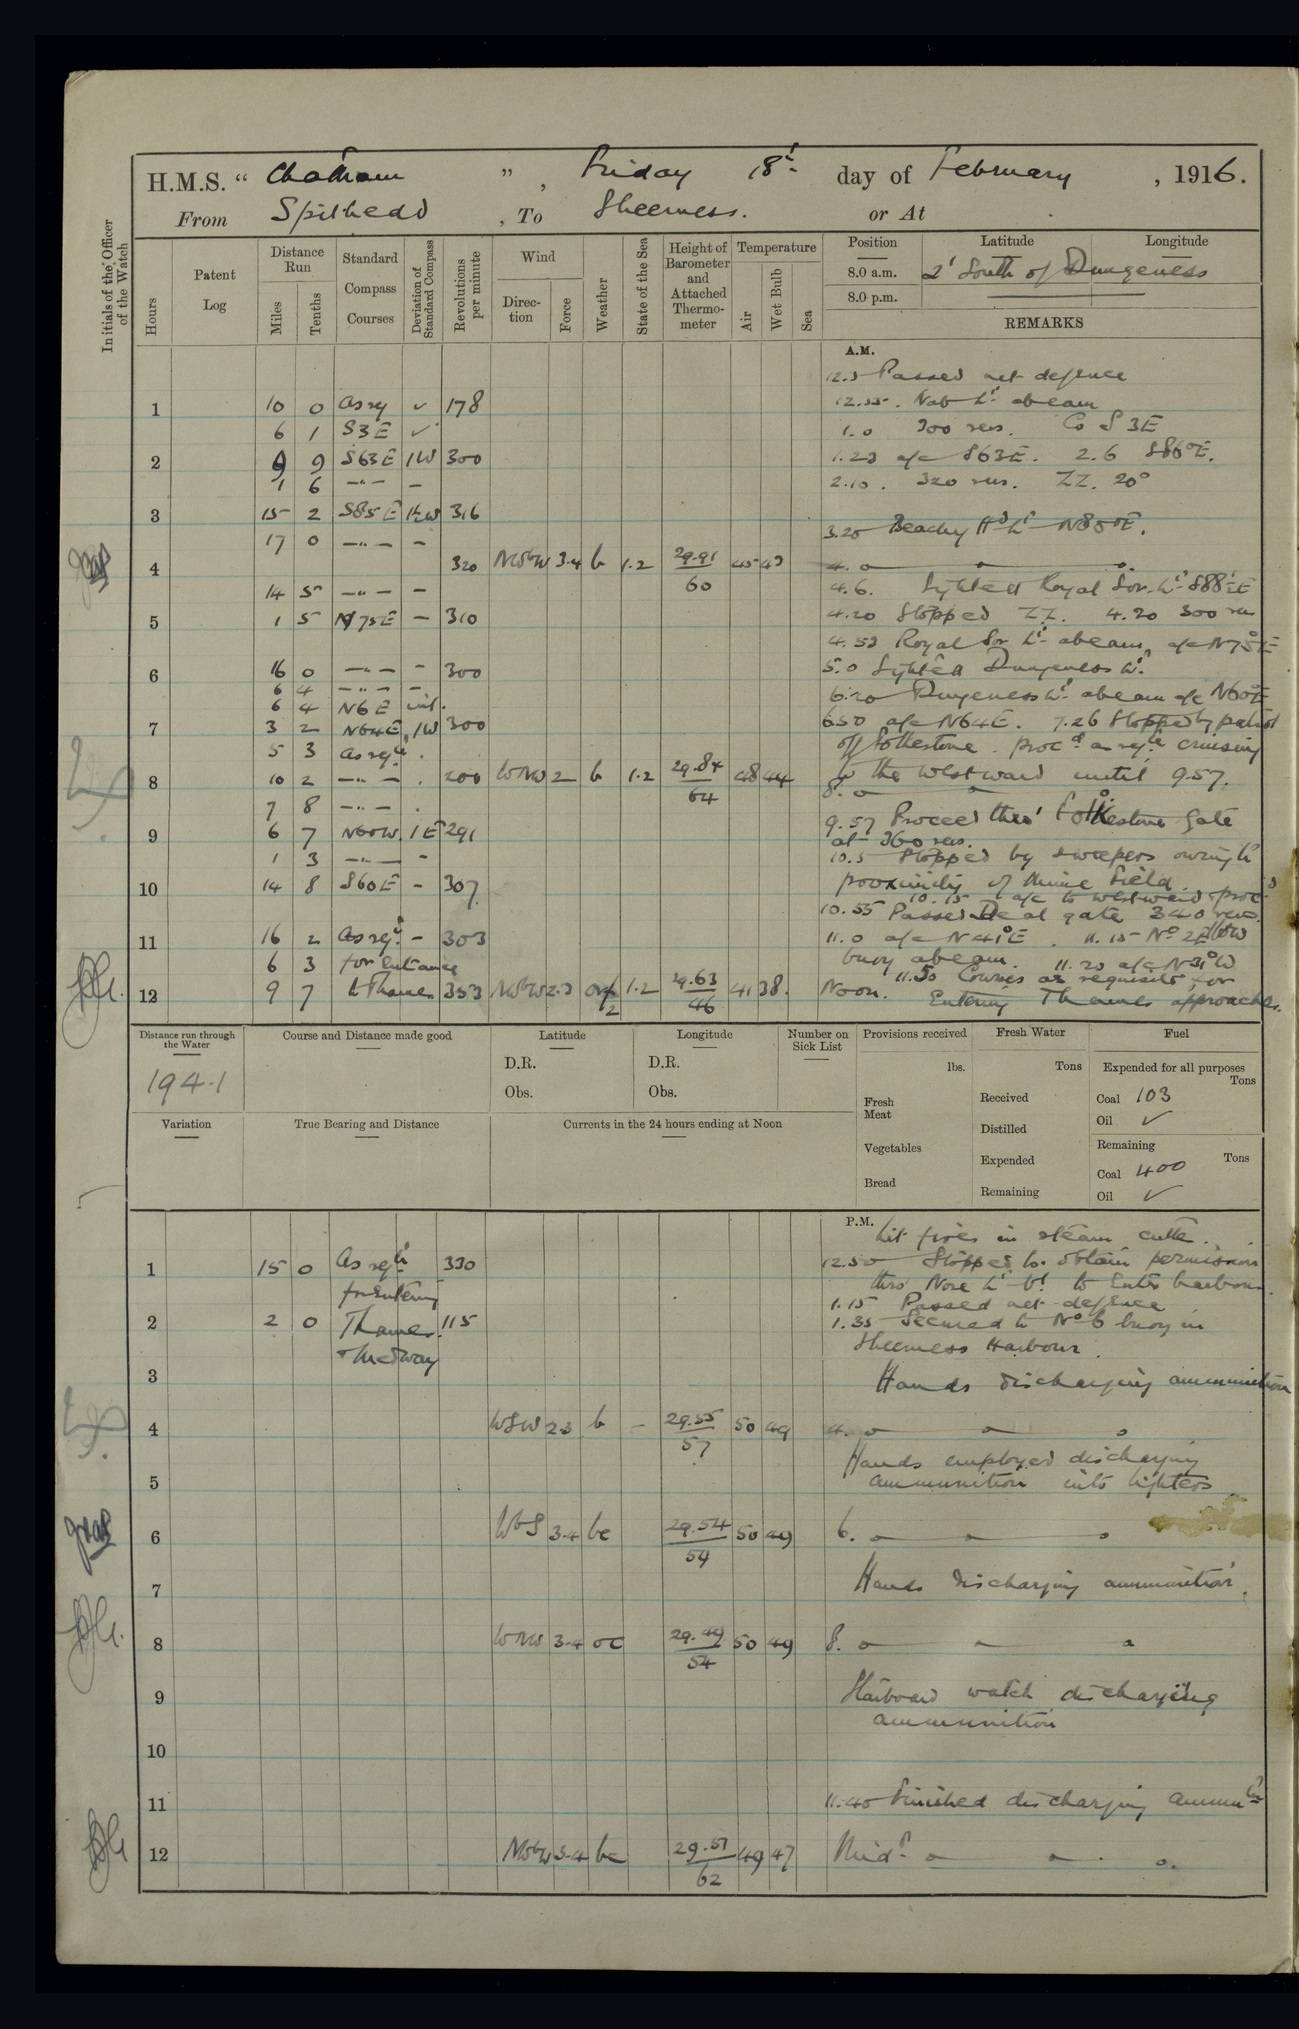 H.M.S. “ Chatham ” , Friday 18th day of February , 1916.
From Spithead , To Sheerness. or At
Initials of the Officer of the Watch
Hours
Patent Log
Distance Run
Miles
Tenths
Standard Compass Courses
Deviation of Standard Compass
Revolutions per minute
Wind
Direction
Force
Weather
State of the Sea
Height of Barometer and Attached Thermometer
Temperature
Air
Wet Bulb
Sea
Position Latitude Longitude
8.0 a.m. 2' South of Dungeness
8.0 p.m.
REMARKS
A.M.
Passed net defence
1 10 0 As req ✓ 178
12.55. Nab Lt abeam
6 1 S3E ✓
1.0 300 revs. Co S 3E
2 9 9 S63E 1W 300
1.23 a/c S63E. 2.6 S86°E.
1 6 -"- -
2.10. 320 revs. ZZ. 20°
3 15 2 S85E 1½W 316
3.20 Beachy Hd Lt N80°E.
17 0 -"- -
4 320 NWbW 3.4 b 1.2 29.91 45 43
60
4.
14 5 -"- -
4.6. Sighted Royal Sov. Lt S88½E
5 1 5 N75E - 310
4.20 Stopped ZZ. 4.20 300 revs
4.53 Royal Sov Lt abeam, a/c N75°E
6 16 0 -"- - 300
5.0 Sighted Dungeness Lt.
6 4 -"- -
6 4 N6E
6.20 Dungeness Lt abeam a/c N60°E
7 3 2 N64E 1W 300
6.50 a/c N64E. 7.26 Stopped by patrol
5 3 As reqte
off Folkestone. Procd as reqte cruising
8 10 2 -"- 200 WNW 2 b 1.2 29.84 48 44
64
to the Westward until 9.57.
8.
7 8 -"-
9 6 7 N60W 1E 291
9.57 Proceed thro' Folkestone Gate
at 360 revs.
1 3 -"- -
10.5 Stopped by sweepers owing to
10 14 8 S60E - 307
proximity of mine field.
10.15 a/c to westward procd
10.55 Passed Deal gate 340 revs.
11 16 2 As reqte - 303
11.0 a/c N41°E. 11.15 No 2
6 3 for entrance
buoy abeam. 11.20 a/c N31°W
11.50 Courses as requisite for
12 9 7 to Thames 353 NWbW 2.3 1.2 29.63 41 38.
46
Noon. Entering Thames approaches.
Distance run through the Water
194.1
Course and Distance made good
Latitude
D.R.
Obs.
Longitude
D.R.
Obs.
Number on Sick List
Provisions received
lbs.
Fresh Meat
Vegetables
Bread
Fresh Water
Tons
Received
Distilled
Expended
Remaining
Fuel
Expended for all purposes
Tons
Coal 103
Oil ✓
Remaining
Tons
Coal 400
Oil ✓
Variation
True Bearing and Distance
Currents in the 24 hours ending at Noon
P.M.
Lit fires in steam cutter.
1 15 0 As reqte 330
12.50 Stopped to obtain permission
for Entering
thro Nore Lt Vl to Enter harbour.
1.15 Passed net defence
2 2 0 Thames. 115
1.35 Secured to No 6 buoy in
& Medway
Sheerness Harbour.
3
Hands discharging ammunition
4 WSW 2.3 b - 29.55 50 49
57
4.
Hands employed discharging
5
ammunition into lighters
6 WbS 3.4 bc 29.54 50 49
54
6.
7
Hands discharging ammunition.
8 WNW 3.4 oc 29.49 50 49
54
8.
9
Starboard watch discharging
ammunition
10
11
11.40 Finished discharging ammun
12 NWbW 3.4 bc 29.51 49 47
62
Midt